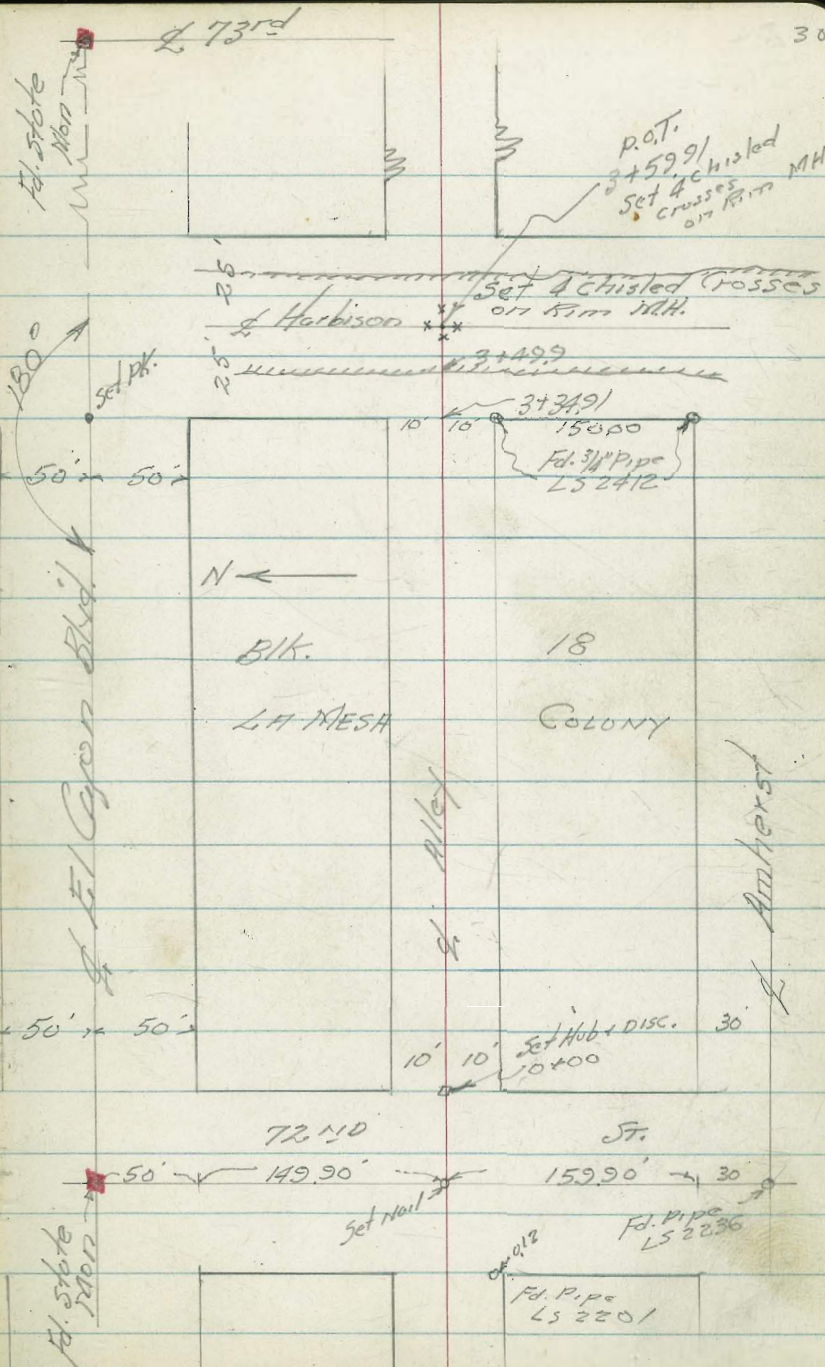 30
℄ 73rd
Fd. State
Mon
P.O.T.
3+59.91
Set 4 chisled
crosses
on Rim MH
25'
Set 4 Chisled Crosses
on Rim M.H.
℄ Harbison
25'
3+49.9
180°
Set PK.
3+34.91
10' 10'
150.00
Fd. 3/4" Pipe
LS 2412
50' 50'
N
Blk. 18
LA MESA COLONY
℄ El Cajon Blvd.
℄ Alley
℄ Amherst
50' 50'
10' 10'
Set Hub & Disc.
0+00
30'
72 ND ST.
50' 149.90' 159.90' 30'
Set Nail
Fd. Pipe
LS 2236
Fd. State
Mon
0.12
Fd. Pipe
LS 2201